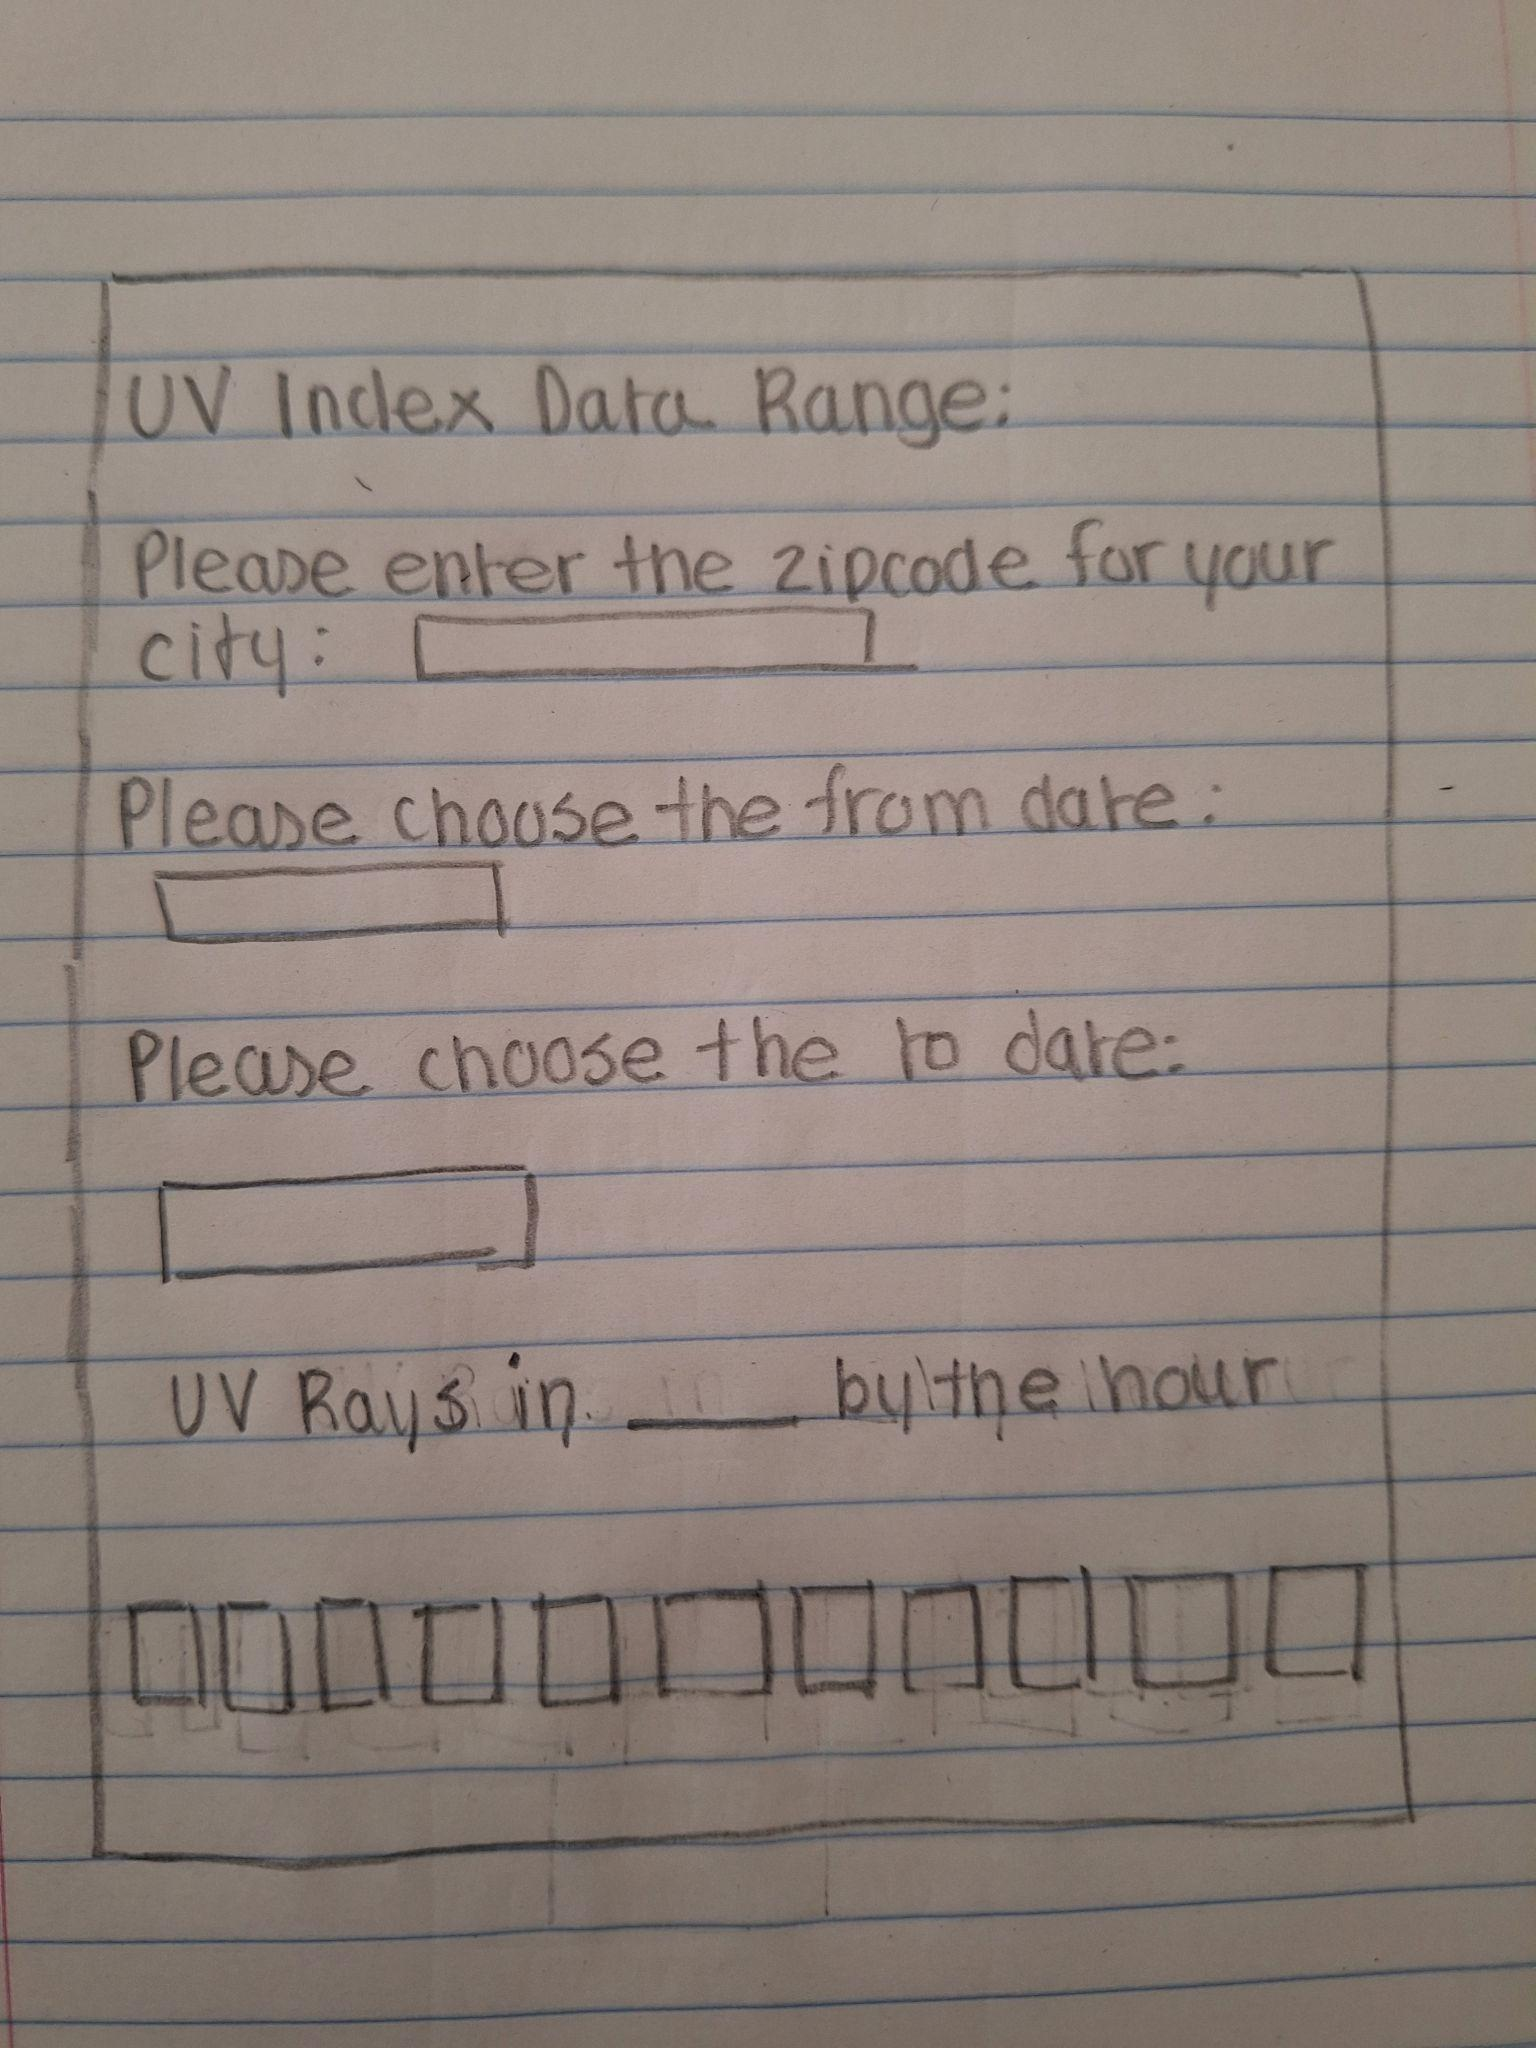 UV Index Data Range:
Please enter the zipcode for your
city:
Please choose the from date:
Please choose the to date:
UV Rays in ____ by the hour